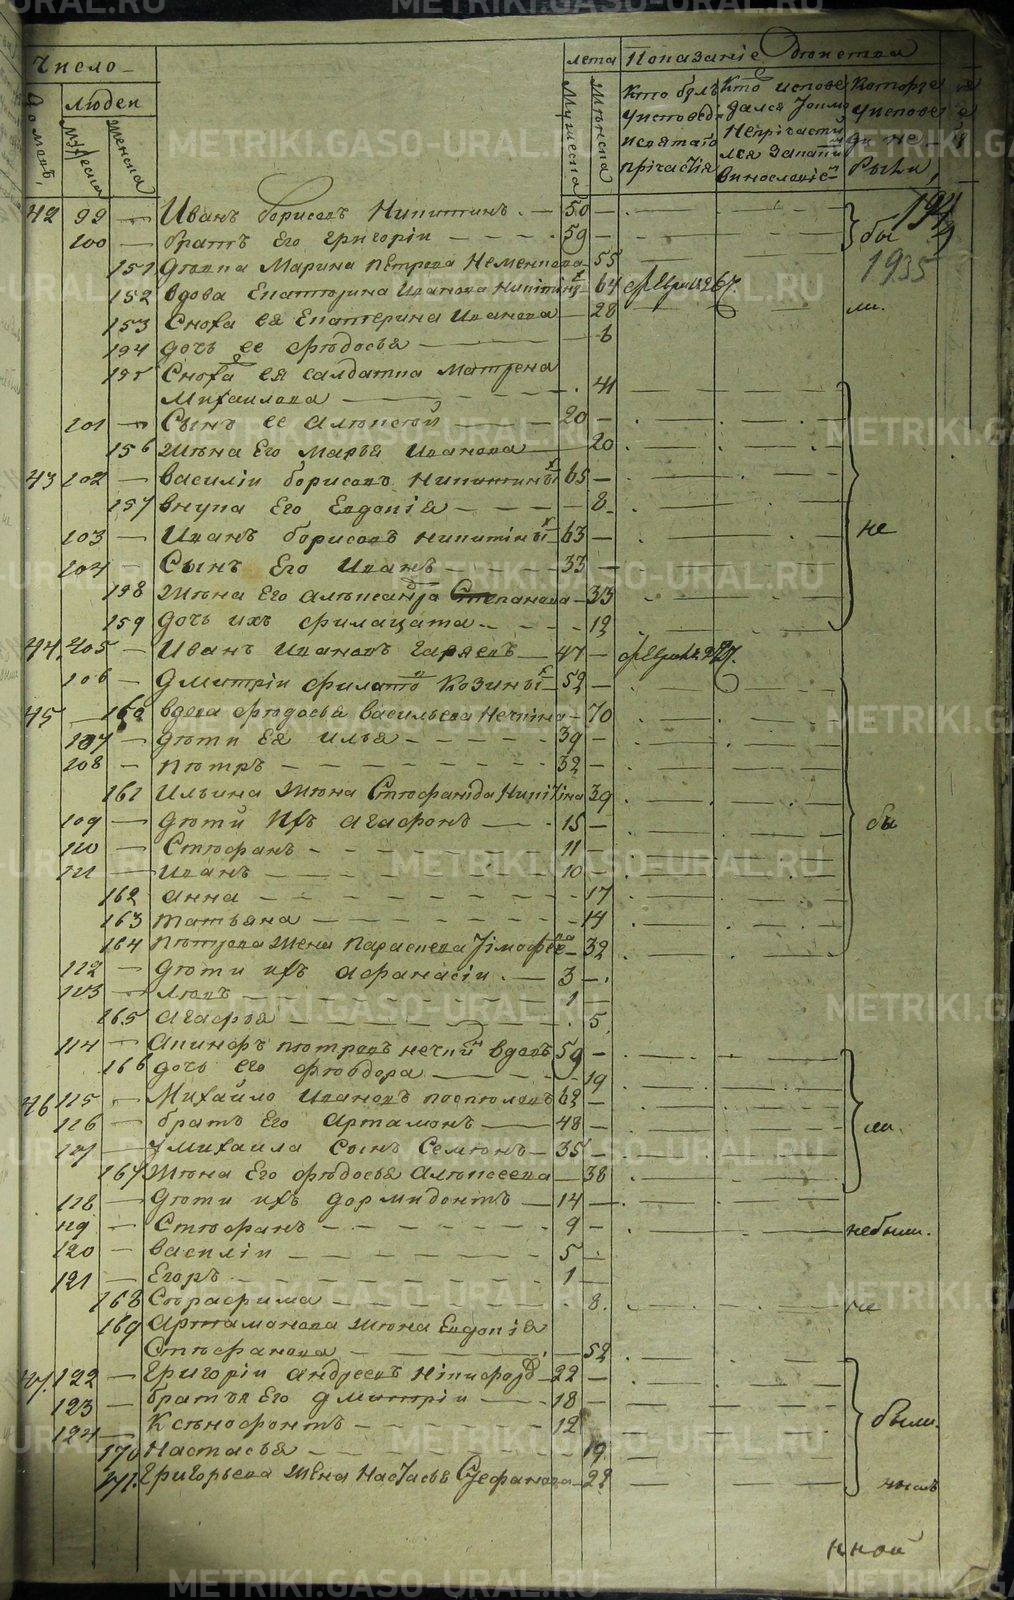 Число
люден
Домовъ,
Мужеска
Женска
лета
Мужеска
Женска
Показаніе Действа
Кто былъ
Уисповеди
исвятаго
прічастія
Кто испове
дался Токмо
Непрічасти
лся Закапи
Винословіе
Которые
Уиспове
ди не
были,
194
1935
42 99 — Иванъ борисовъ Никитинъ. — 50 —
100 — братъ Его григоріи — 59 —
151 Марина петрова 55
152 вдова Екатерина Иванова Никитин — 64 февраля 26/7.
153 Сноха ея Екатерина Иванова — 28
154 дочь ее федосья — 6
155 Сноха ея салдатка матрена
Михаилова — 41
101 — Сынъ ее алексей — 20 —
156 Жена Его марья Иванова — 20
43 102 — василіи борисовъ Никитинъ 65 —
157 внука Его Евдокія — 8
103 — Иванъ борисовъ никитинъ 63 —
104 — Сынъ Его Иванъ — 33 —
158 Жена Его александра Степанова — 33
159 дочь ихъ филацата — 12
44 105 — Иванъ Ивановъ гаряевъ — 47 — февраля 27.
106 — дмитріи филато Козинъ — 52 —
45 — 160 вдова федосья васильева Нечкина — 70
107 — дети Ея илья — 39 —
108 — петръ — 32 —
161 Ильина Жена Стефанида Никитина 39
109 — дети ихъ агафонъ — 15 —
110 — Стефанъ — 11 —
111 — Иванъ — 10 —
162 анна — 17
163 татьяна — 14
164 петрова Жена параскева Тімофеева — 32
112 — дети ихъ афанасіи — 3 —
113 — левъ — 1 —
165 агафья — 5
114 — акинфъ петровъ нечкин вдовъ 59 —
166 дочь его феодора — 19
46 115 — Михайло Ивановъ поспеловъ 62 —
116 — братъ Его артамонъ — 48 —
117 — Умихаила Сынъ Семенъ — 35 —
167 Жена Его федосья алексеева — 38
118 — дети ихъ дормидонтъ — 14 —
119 — Стефанъ — 9 —
120 — василіи — 5 —
121 — Егоръ — 1 —
168 Серафима — 8
169 артамонова жена Евдокія
Стефанова — 52
47. 122 — григоріи андреевъ Нікифор — 22 —
123 — братья Его дмитріи — 18 —
124 — Ксенофонтъ — 12
170 Настасья — 19
171. григорьева Жена Настасья Стефанова — 22
бы
ли.
не
бы
ли.
небыли.
не
были.